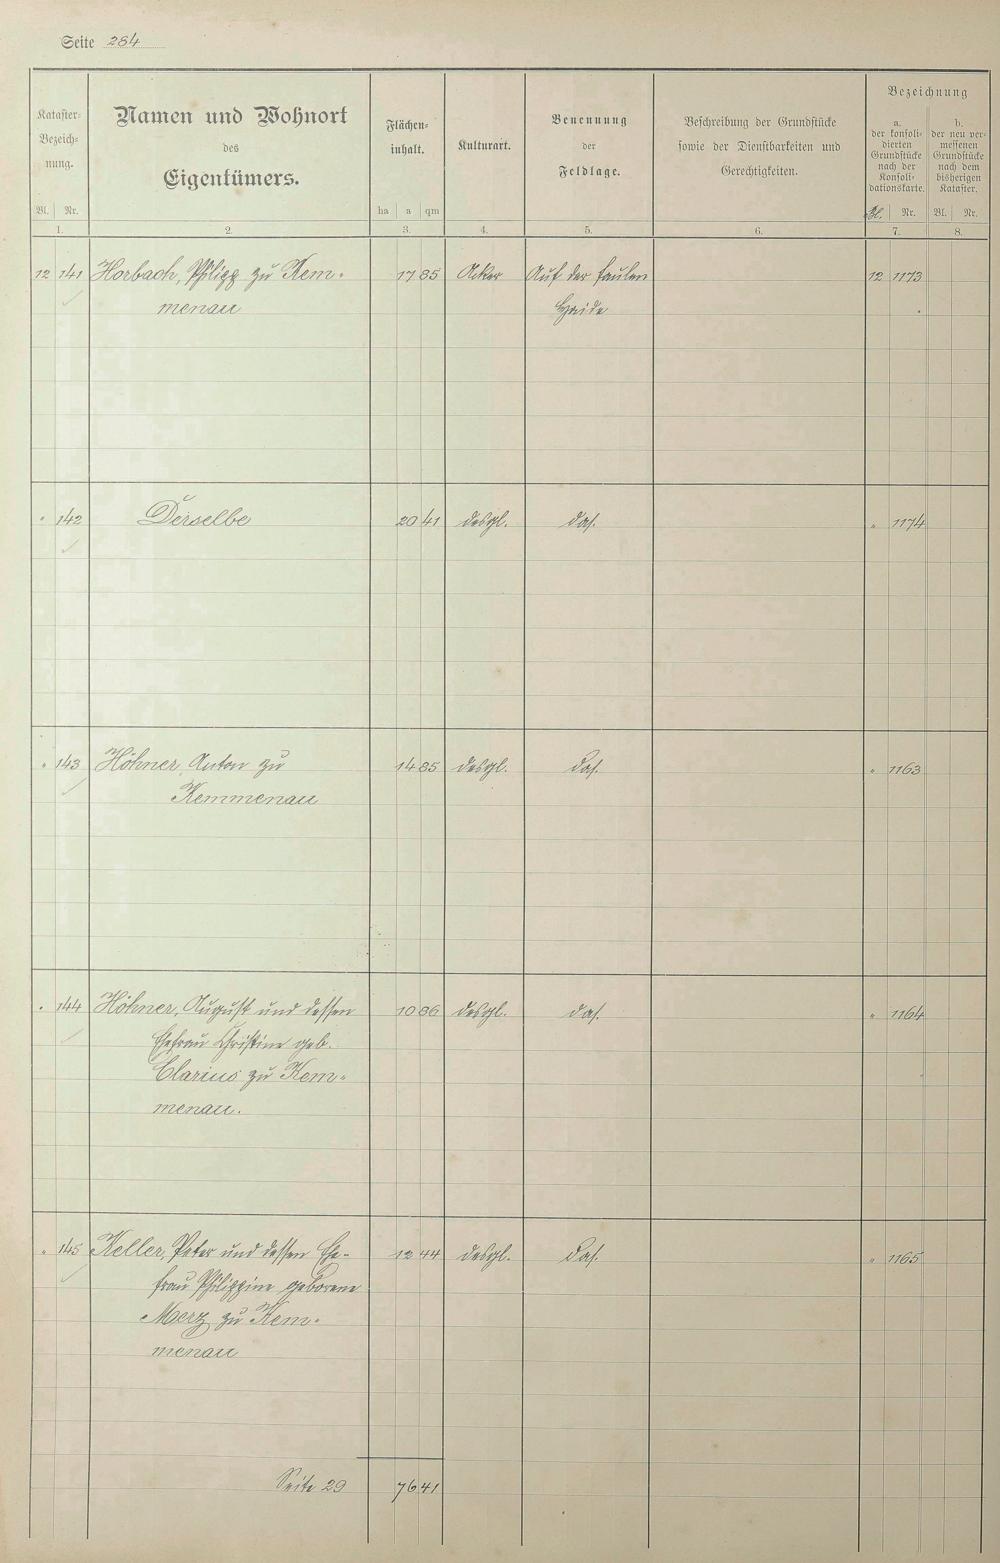 Seite 284
Kataster-
Bezeich-
nung.
Bl. Nr.
Namen und Wohnort
des
Eigentümers.
Flächen-
inhalt.
ha a qm
Kulturart.
Benennung
der
Feldlage.
Beschreibung der Grundstücke
sowie der Dienstbarkeiten und
Gerechtigkeiten.
Bezeichnung
a.
der konsoli-
dierten
Grundstücke
nach der
Konsoli-
dationskarte.
Bl. Nr.
b.
der neu ver-
messenen
Grundstücke
nach dem
bisherigen
Kataster.
Bl. Nr.
1. 2. 3. 4. 5. 6. 7. 8.
12 141 Horbach, Philipp zu Kem- 17 85 Acker Auf der faulen 12 1173
menau Haide
" 142 Derselbe 20 41 desgl. das. " 1174
" 143 Höhner, Anton zu 14 85 desgl. das. " 1163
Kemmenau
" 144 Höhner, August und dessen 10 86 desgl. das. " 1164
Ehefrau Christine geb.
Clarius zu Kem-
menau.
" 145 Keller, Peter und dessen Ehe- 12 44 desgl. das. " 1165
frau Philippine geborene
Merz zu Kem-
menau
Seite 29 76 41